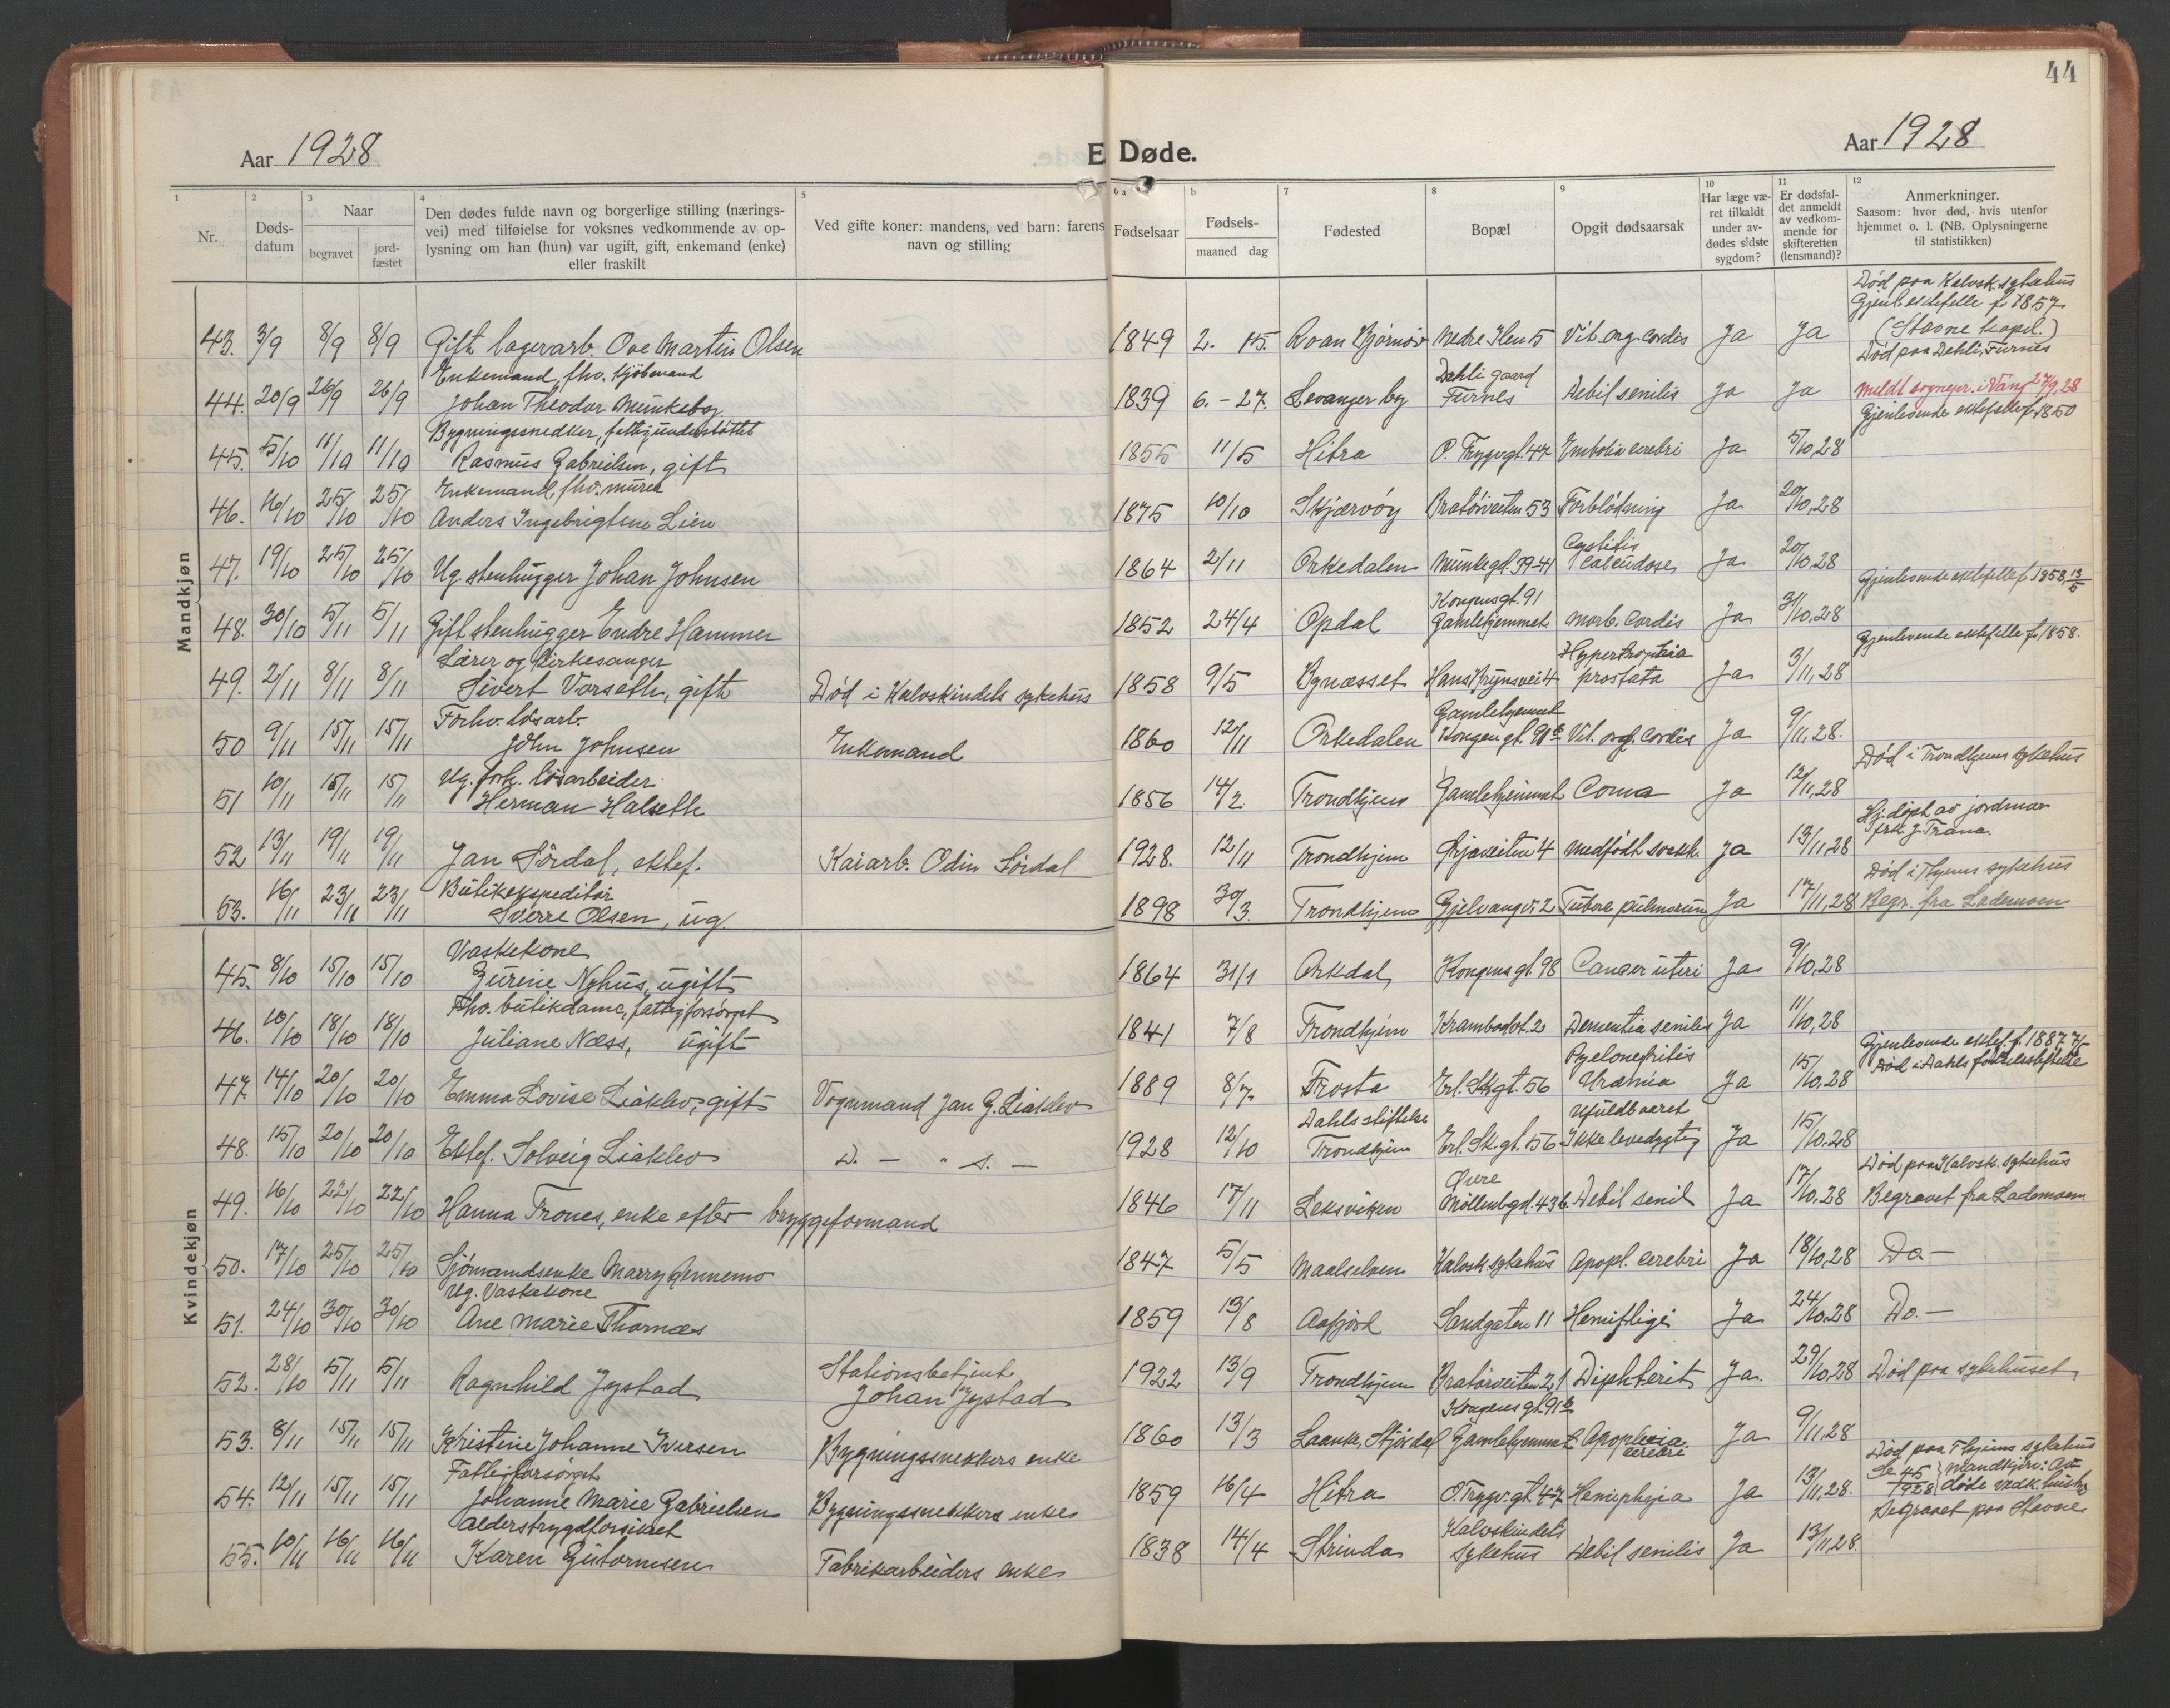 44
Aar 1928
E Døde.
Aar 1928
1 2 3 4 5 6 a b 7 8 9 10 11 12
Nr.
Døds-
datum
Naar
begravet
jord-
fæstet
Den dødes fulde navn og borgerlige stilling (nærings-
vei) med tilføielse for voksnes vedkommende av op-
lysning om han (hun) var ugift, gift, enkemand (enke)
eller fraskilt
Ved gifte koner: mandens, ved barn: farens
navn og stilling
Fødselsaar
Fødsels-
maaned dag
Fødested
Bopæl
Opgit dødsaarsak
Har læge væ-
ret tilkaldt
under av-
dødes sidste
sygdom?
Er dødsfal-
det anmeldt
av vedkom-
mende for
skifteretten
(lensmand)?
Anmerkninger.
Saasom: hvor død, hvis utenfor
hjemmet o. l. (NB. Oplysningerne
til statistikken)
Mandkjøn
Død paa Kalvsk. sykehus
Gjenl. ektefelle f. 1857
(Stavne kapel.)
43. 3/9 8/9 8/9 Gift lagerarb. Ove Martin Olsen 1849 2. 15. Roan Bjørnør Nedre Ilen 5 Vit. org. cordis Ja Ja
Enkemand, fhv. kjøbmand Dahli gaard Død paa Dahli, Furnes
44. 20/9 26/9 26/9 Johan Theodor Munkeboy 1839 6. - 27. Levanger by Furnes Debil senilis Ja Ja Meldt sognepr. i Vang 27/9, 28
Bygningssnedker, fattigunderstøttet Gjenlevende ektefelle f. 1850
45. 5/10 11/10 11/10 Rasmus Gabrielsen, gift 1855 11/5 Hitra O. Trygv.gt. 47 Embolia cerebri Ja 5/10,28
Enkemand, fhv. murer
46. 16/10 25/10 25/10 Anders Ingebrigtsen Lien 1875 10/10 Skjærvøy Bratørveiten 53 Forblødning Ja 20/10,28
Cystitis
47. 19/10 25/10 25/10 Ug. stenhugger Johan Johnsen 1864 2/11 Orkedalen Munkegt. 39-41 Calculosa Ja 20/10,28
Kongensgt. 91 Gjenlevende ektefelle f. 1858 13/5
48. 30/10 5/11 5/11 Gift stenhugger Endre Hammer 1852 24/4 Opdal Gamlehjemmet Morb. Cordis Ja 31/10,28
Lærer og kirkesanger Hypertrophia Gjenlevende ektefelle f. 1858.
49. 2/11 8/11 8/11 Sivert Vorseth, gift Død i Kalvskindets sykehus 1858 9/5 Bynæsset Hans Brynsvei 4 prostata Ja 3/11,28
Forhv. løsarb. Gamlehjemmet
50 9/11 15/11 15/11 John Johnsen Enkemand 1860 12/11 Orkedalen Kongen gt. 91b Vit. org. Cordis Ja 9/11,28.
Ug. forh. løsarbeider Død i Trondhjems sykehus
51 10/11 15/11 15/11 Herman Halseth 1856 14/2 Trondhjem Gamlehjemmet Coma Ja 12/11,28
Hj.døpt av jordmor
frk. J. Trana.
52 13/11 19/11 19/11 Jan Sørdal, ektef. Kaiarb. Odin Sørdal 1928. 12/11 Trondhjem Ørjaveiten 4 Medfødt svakh. Ja 13/11,28
Butikekspeditør Død i T.hjems sykehus
53. 16/11 23/11 23/11 Sverre Olsen, ug. 1898 30/3. Trondhjem Gjelvangv. 2 Tuberc pulmonum Ja 17/11,28 Begr. fra Lademoen
Kvindekjøn
Vaskekone
45. 8/10 15/10 15/10 Gurine Nyhus, ugift 1864 31/1 Orkdal Kongens gt. 98 Cancer uteri Ja 9/10,28
Fhv. butikdame, fattigforsørget
46. 10/10 18/10 18/10 Juliane Næss, ugift 1841 7/8 Trondhjem Krambodgt. 2 Dementia senilis Ja 11/10,28
Pyelonefritis Gjenlevende ektef. f. 1887 7/5
47. 14/10 20/10 20/10 Emma Lovise Liaklev, gift Vognmand Jan G. Liaklev 1889 8/7 Frosta Erl. Skgt. 56 Urämia Ja 15/10,28 Død i Dahls fødselsstiftelse
Dahls stiftelse Ufuldbaaret
48. 15/10 20/10 20/10 Ektef. Solveig Liaklev D. — " s. — 1928 12/10 Trondhjem Erl. Sk.gt. 56 Ikke levedygtig Ja 15/10,28
Øvre Død paa Kalvsk. sykehus
49. 16/10 22/10 22/10 Hanna Trones, enke efter bryggeformand 1846 17/11 Leksviken Møllenbgd. 43b Debil senil Ja 17/10.28 Begravet fra Lademoen
50. 17/10 25/10 25/10 Sjømandsenke Marry Gennemo 1847 5/5 Maalselven Kalvsk. sykehus Apopl. cerebri Ja 18/10,28 Do —
Ug. Vaskekone
51. 24/10 30/10 30/10 Ane Marie Thornæs 1859 13/8 Aafjord Sandgaten 11 Hemifligi Ja 24/10,28 Do. —
Stationsbetjent
52. 28/10 5/11 5/11 Ragnhild Jystad Johan Jystad 1922 13/9 Trondhjem Bratørveiten 21 Diphterit Ja. 29/10,28 Død paa sykehuset
Kongens gt. 91b
53. 8/11 15/11 15/11 Kristine Johanne Iversen Bygningssnekkers enke 1860 13/3 Laanke, Stjørdal Gamlehjemmet Apoplexia cerebri Ja 9/11,28
Fattigforsørget Død paa T.hjems sykehus
54. 12/11 15/11 15/11 Johanne Marie Gabrielsen Bygningssnekkers enke 1859 16/4 Hitra O. Trygv. gt. 47 Hemiplegia Ja 13/11,28. Se 45/1928 Mandkjøn: døde vedk. hustru
Alderstrygdforsikret Kalvskindets Begravet paa Stavne
55. 10/11 16/11 16/11 Karen Gutormsen Fabrikarbeiders enke 1838 14/4 Strinda sykehus Debil senilis Ja 13/11,28.